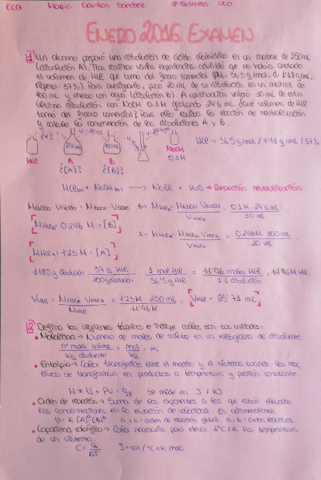 ECA María Cantos Sánchez
ENERO 2016. EXAMEN
① Un alumno preparó una disolución de ácido clorhídrico en un matraz de 250 mL
(disolución A). Tras realizar varios
el volumen de HCl que tomó del frasco comercial (PM: 36'5 g/mol, d: 1'18 g/mL,
riqueza 37%). Para averiguarlo, pasó 20 mL de su disolución a un matraz de
100 mL y enrasó con agua (disolución B). A continuación valoró 10 mL de esta
última disolución con NaOH 0'1 M gastando 24'6 mL. ¿Qué volumen de HCl
tomó del frasco comercial? Para ello escriba la reacción de neutralización
y calcule la concentración de las disoluciones A y B.
HCl A B NaOH
¿[A]? ¿[B]? 0'1 M
HCl → 36'5 g/mol / 1'18 g/mL / 37%
HCl + NaOH → NaCl + H₂O → Reacción neutralización
B = M HCl = M NaOH · V NaOH / V HCl = 0'1 M · 24'6 mL / 10 mL
M HCl = 0'246 M = [B]
A = 0'246 M · 100 mL / 20 mL
M HCl = 1'23 M = [A]
1180 g disolución · 37 g HCl / 100 g disolución · 1 mol HCl / 36'5 g HCl = 11'96 moles HCl / 1 L disolución = 11'96 M HCl
V HCl = 1'23 M · 250 mL / 11'96 M = V HCl = 25'71 mL
② Defina los siguientes términos e indique cuáles son sus unidades:
• Molalidad → Número de moles de soluto en un kilogramo de disolvente.
nº moles soluto / kg disolvente = mol / kg = m
• Entalpía → Calor transferido entre el medio y el sistema cuando los reac-
tivos se transforman en productos a temperatura y presión constante
H = U + PV = qp se mide en J / kJ
• Orden de reacción → Suma de los exponentes a los que están elevadas
las concentraciones en la ecuación de velocidad. Es adimensional.
v = K·[A]ᵃ[B]ᵇ a + b = orden de reacción global
• Capacidad calorífica → Calor necesario para elevar 1 °C / K la temperatura
de un sistema.
C = q / ΔT